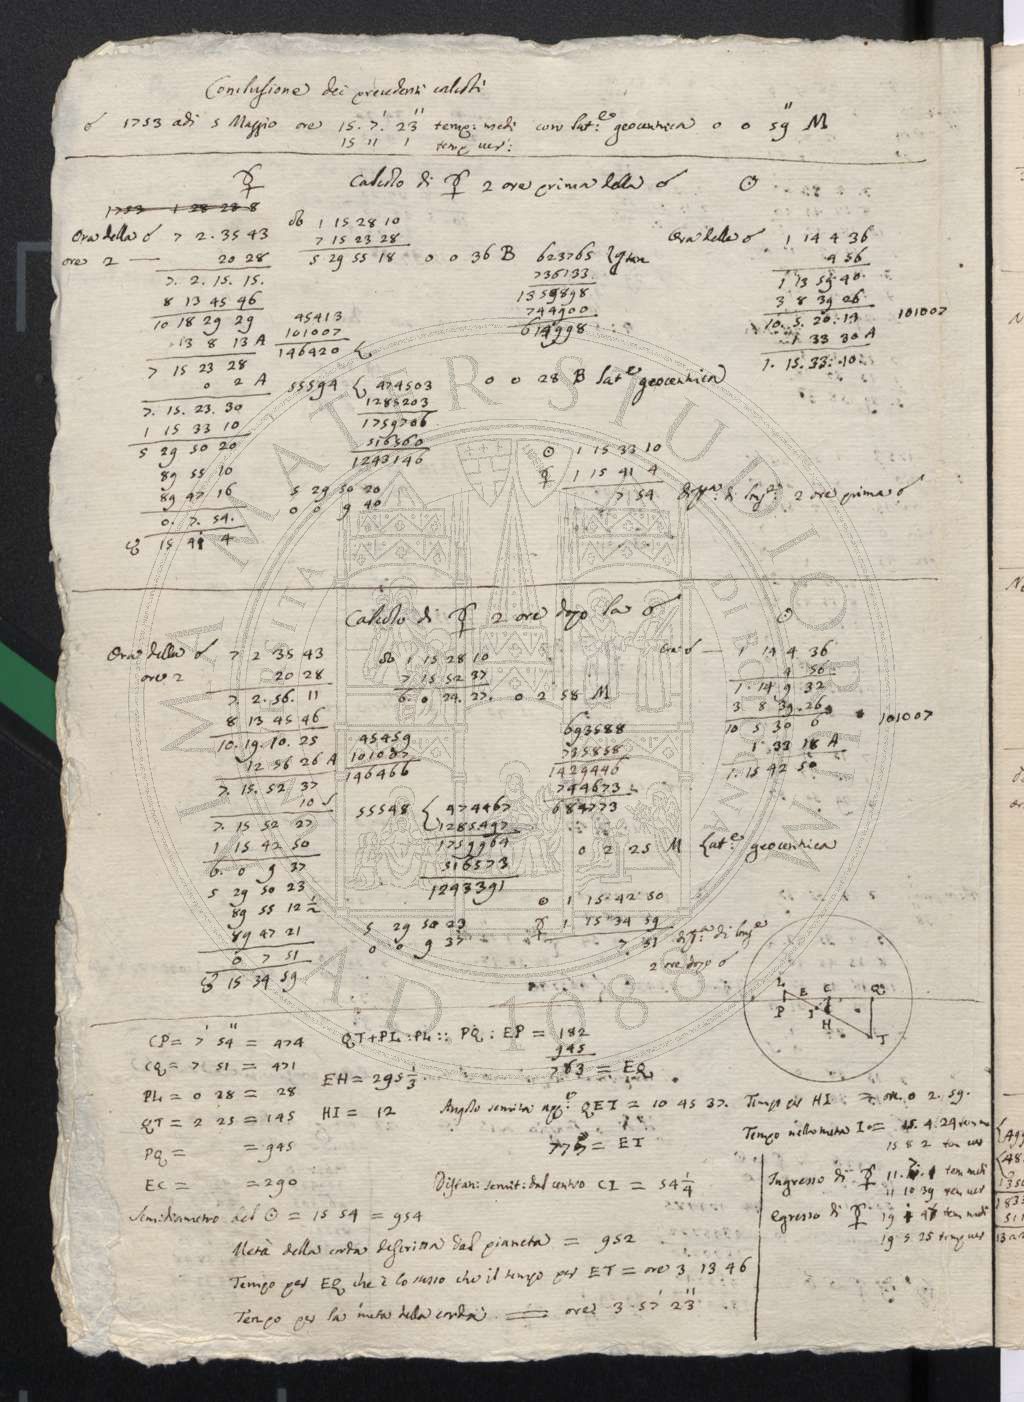 Conclusione dei precedenti calcoli
☌ 1753 adi 5 Maggio ore 15. 7.' 23'' temp: medi con lat:e geocentrica 0 0 59'' M
15 11 1 temp ver:
☿ Calcolo di ☿ 2 ore prima della ☌ ☉
1753 1 28 28 8
Ora della ☌ 7 2. 35 43
ore 2 — 20 28
7. 2. 15. 15.
8 13 45 46
10 18 29 29
13 8 13 A
7 15 23 28
0 2 A
7. 15. 23. 30
1 15 33 10
5 29 50 20
89 55 10
89 47 16
0. 7. 54.
☿ 15 41 4
☊ 1 15 28 10
7 15 23 28
5 29 55 18 0 0 36 B
45413
101007
146420
55594 { 474503
1285203
1759706
516560
1243146
5 29 50 20
0 0 9 40
623765
736133
1359898
744900
614998
0 0 28 B lat:e geocentrica
☉ 1 15 33 10
☿ 1 15 41 4
7 54 diffa: di longe: 2 ore prima ☌
Ora della ☌ 1 14 4 36
4 56
1 13 59 40
3 8 39 26
10. 5. 20. 14 101007
1 33 30 A
1. 15. 33. 10.
Calcolo di ☿ 2 ore dopo la ☌ ☉
Ora della ☌ 7 2 35 43
ore 2 20 28
7. 2. 56. 11
8 13 45 46
10. 19. 10. 25
12 56 26 A
7. 15. 52. 37
10 S
7. 15 52 27
1 15 42 50
6. 0 9 37
5 29 50 23
89 55 12 1/2
89 47 21
0 7 51
☿ 15 34 59
☊ 1 15 28 10
7 15 52 37
6. 0 24. 27. 0 2 58 M
45459
101007
146466
55548 { 474467
1285497
1759964
516573
1243391
5 29 50 23
0 0 9 37
693588
735858
1429446
744673
684773
0 2 25 M Lat:e geocentrica
☉ 1 15 42 50
☿ 1 15 34 59
7 51 diffa: di longe
2 ore dopo ☌
Ora ☌ — 1 14 4 36
4 56
1. 14 9 32
3 8 39. 26
10 5 30 6 101007
1 33 18 A
1. 15 42 50
L E C Q
P I H T
CP = 7' 54'' = 474
CQ = 7 51 = 471
PL = 0 28 = 28
QT = 2 25 = 145
PQ = = 945
EC = = 290
QT + PL : PL :: PQ : EP = 182
945
763 = EQ
EH = 295 1/3
HI = 12
QET = 10 45 37.
775 = ET
CI = 54 1/4
Semidiametro del ☉ = 15 54 = 954
Metà della corda descritta dal pianeta = 952
Tempo per EQ che è lo stesso che il tempo per ET = ore 3 13 46
Tempo per la metà della corda = ore 3 57' 23''
Tempo per HI = ore 0 2. 59.
Tempo nella metà I =
15 8 2 tem ver
Ingresso di ☿
11 10 39 tem ver
Egresso di ☿
19 5 25 temp ver
ALMA MATER STUDIORUM
A.D. 1088